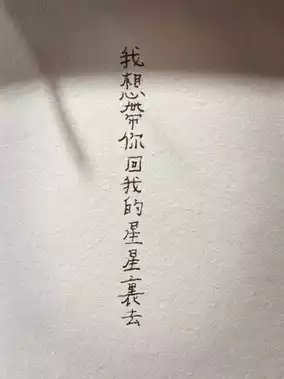 我想帶你回我的星星裏去